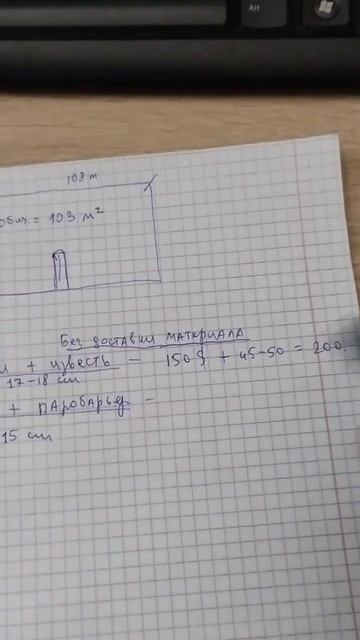 108 m
= 103 м²
Без доставки материала
+ известь - 150 $ + 45-50 = 200.
17-18 см
+ паробарьер -
15 см
Alt